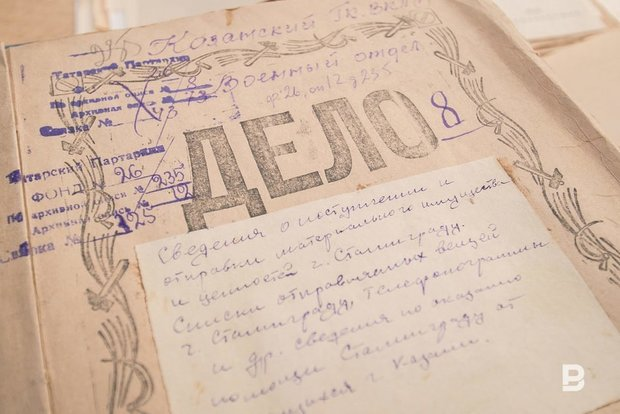 Казанский Гк. ВКП(б)
Татарский Партархив
Военный отдел
По архивной описи №
Архивная опись №
Связка №
ф 26, оп 12 д 255
ДЕЛО 8
Татарский Партархив
ФОНД № 26
По архивной описи № 235
Архивная опись № 12
Связка № 125
Сведения о поступлении и
отправки материального имущества
и ценностей г. Сталинграду.
Списки отправляемых вещей
г. Сталинграду, телефонограммы
и др. сведения по оказанию
помощи Сталинграду от
г. Казани.
B